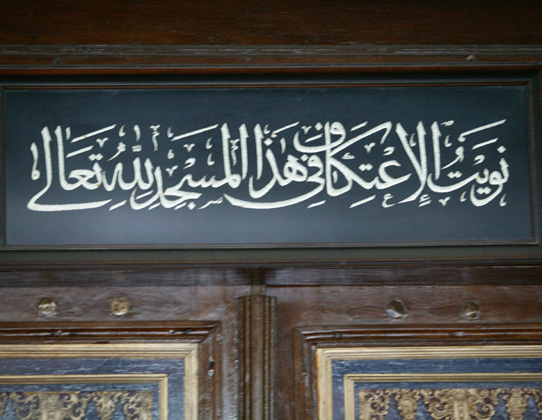 نويت الإعتكاف في هذا المسجد لله تعالى